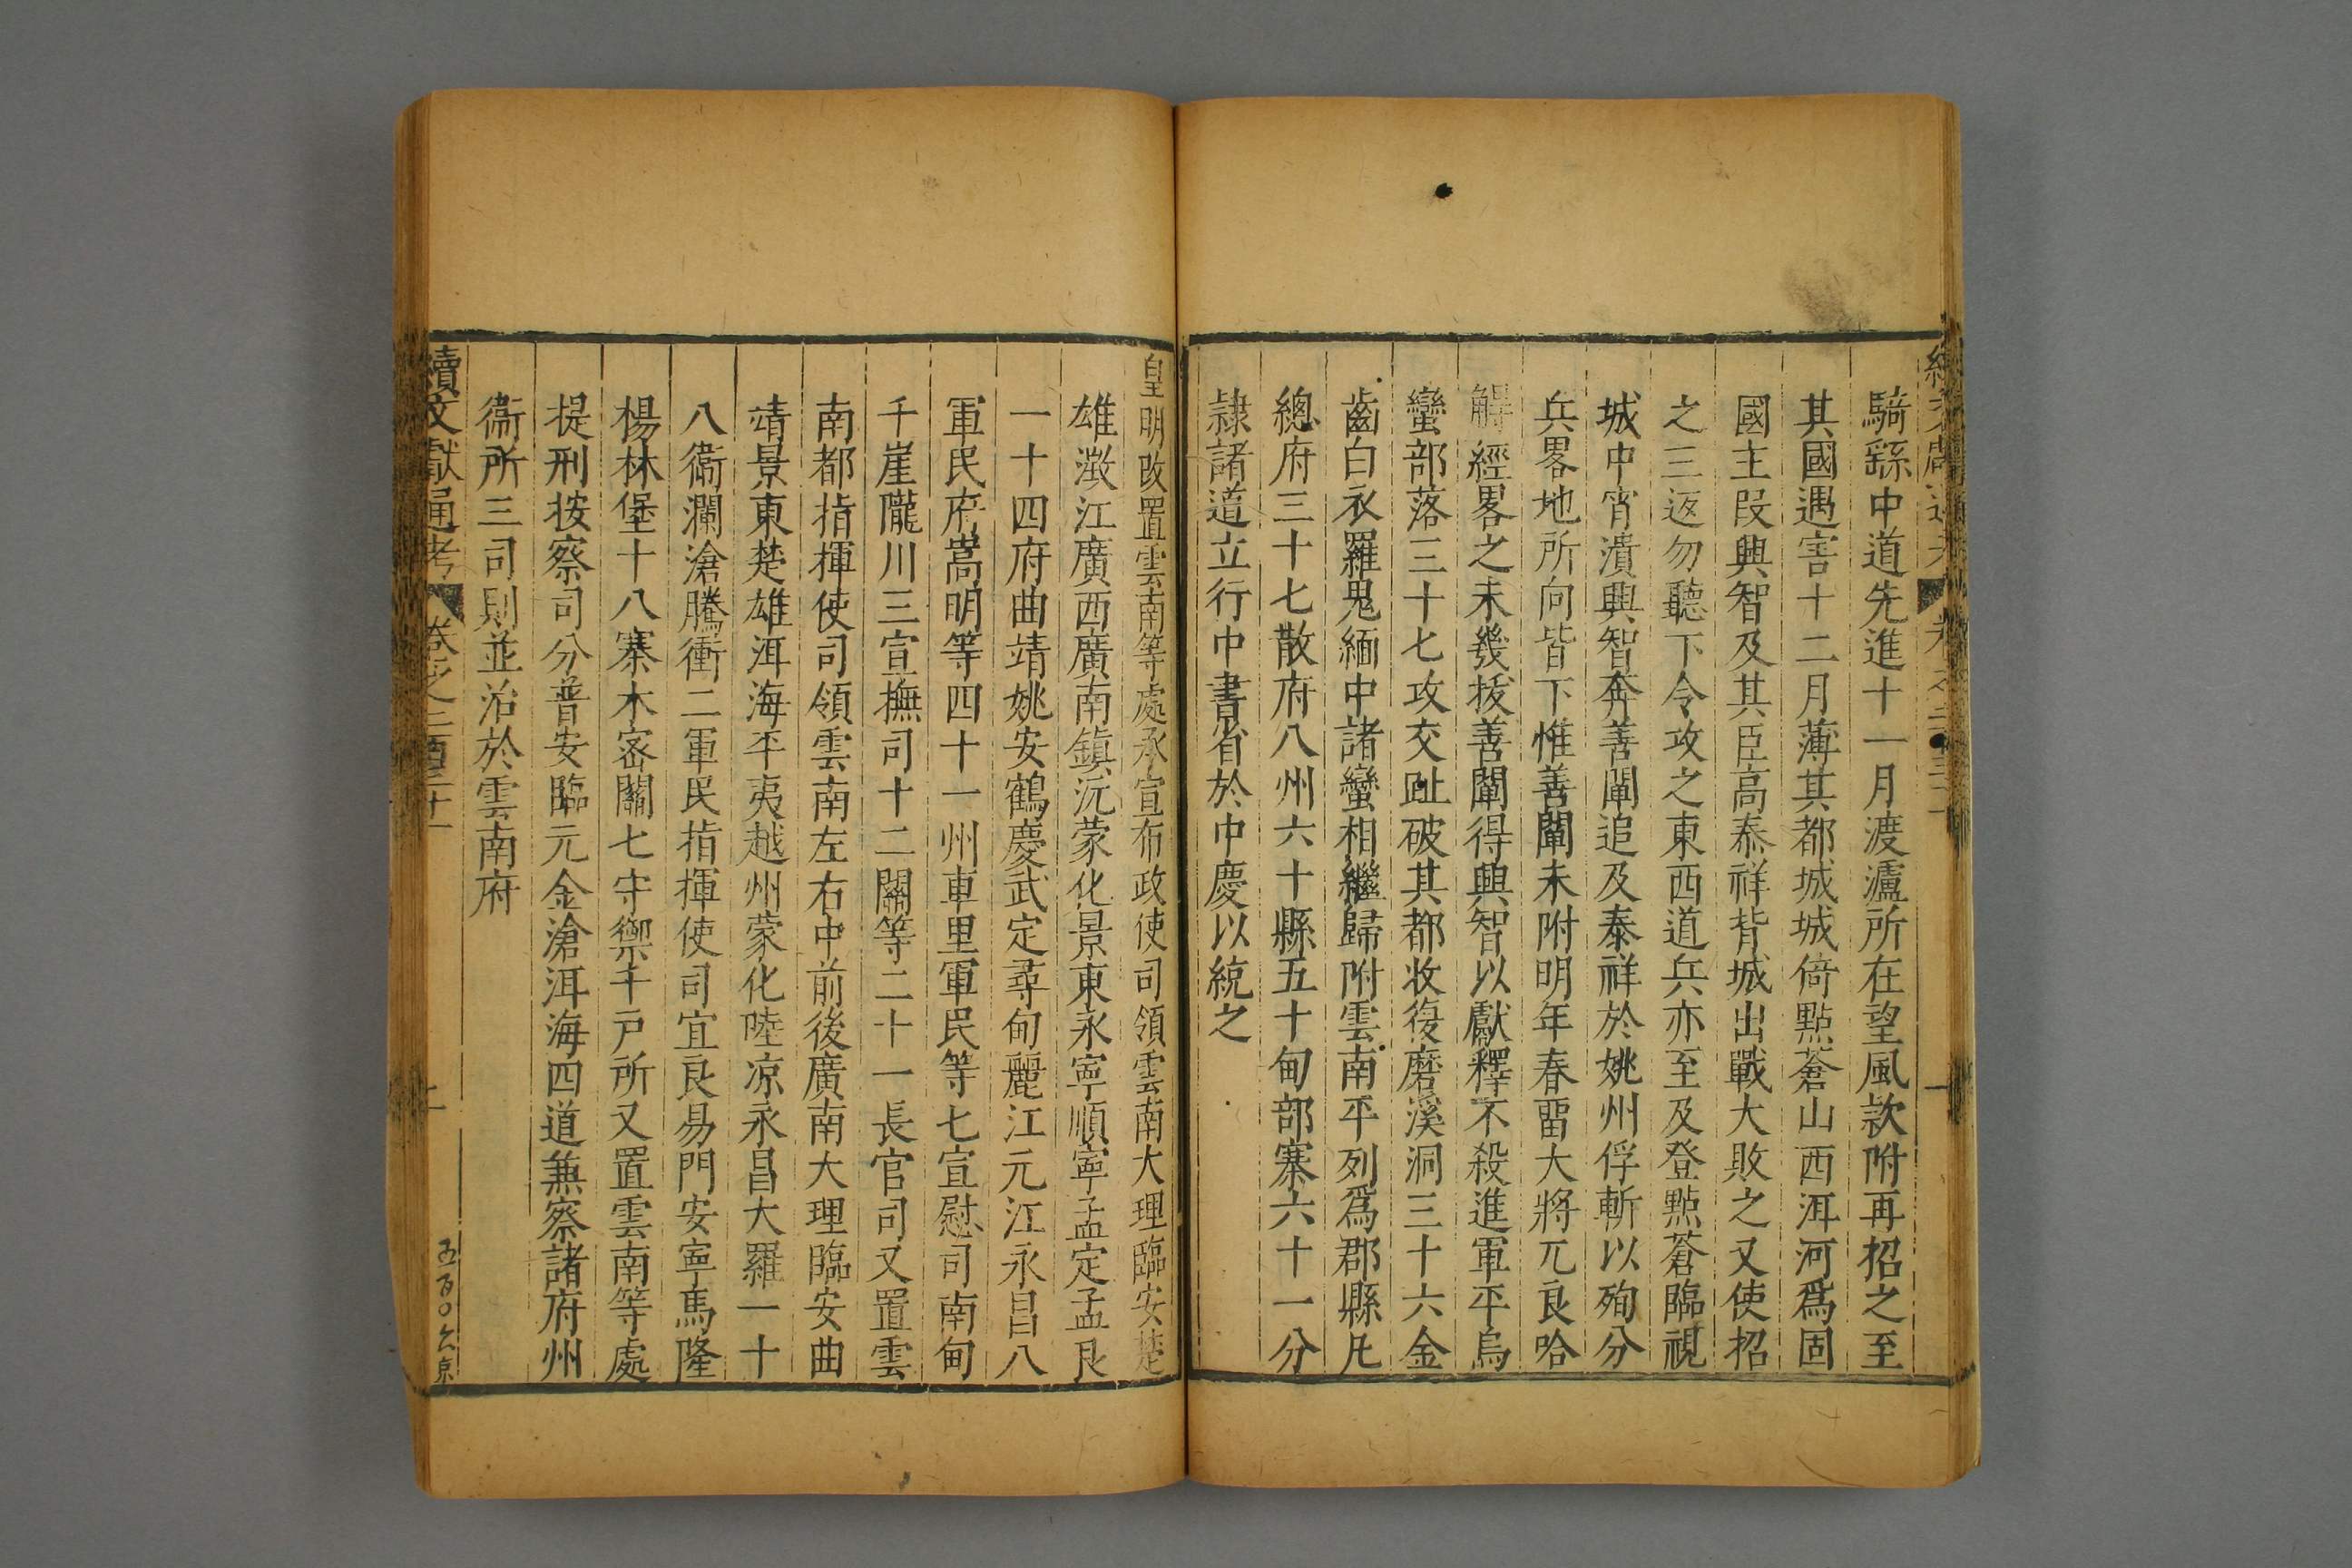 騎繇中道先進十一月渡瀘所在望風欵附再招之至
其國遇害十二月薄其都城城倚點蒼山西洱河爲固
國主段興智及其臣高泰祥背城出戰大敗之又使招
之三返勿聽下令攻之東西道兵亦至及登點蒼臨視
城中宵潰興智奔善闡追及泰祥於姚州俘斬以殉分
兵畧地所向皆下惟善闡未附明年春畱大將兀良哈
觧經畧之未幾拔善闡得興智以獻釋不殺進軍平烏
蠻部落三十七攻交趾破其都收復磨溪洞三十六金
齒白衣羅鬼緬中諸蠻相繼歸附雲南平列爲郡縣凡
總府三十七散府八州六十縣五十甸部寨六十一分
隷諸道立行中書省於中慶以統之
皇明改置雲南等處承宣布政使司領雲南大理臨安楚
雄澂江廣西廣南鎮沅蒙化景東永寧順寧孟定孟艮
一十四府曲靖姚安鶴慶武定尋甸麗江元江永昌八
軍民府嵩明等四十一州車里軍民等七宣慰司南甸
千崖隴川三宣撫司十二關等二十一長官司又置雲
南都指揮使司領雲南左右中前後廣南大理臨安曲
靖景東楚雄洱海平夷越州蒙化陸凉永昌大羅一十
八衞瀾滄騰衝二軍民指揮使司宜良易門安寧馬隆
楊林堡十八寨木宻關七守禦千戸所又置雲南等處
提刑按察司分普安臨元金滄洱海四道兼察諸府州
衞所三司則並治於雲南府
續文獻通考 卷之二百三十一